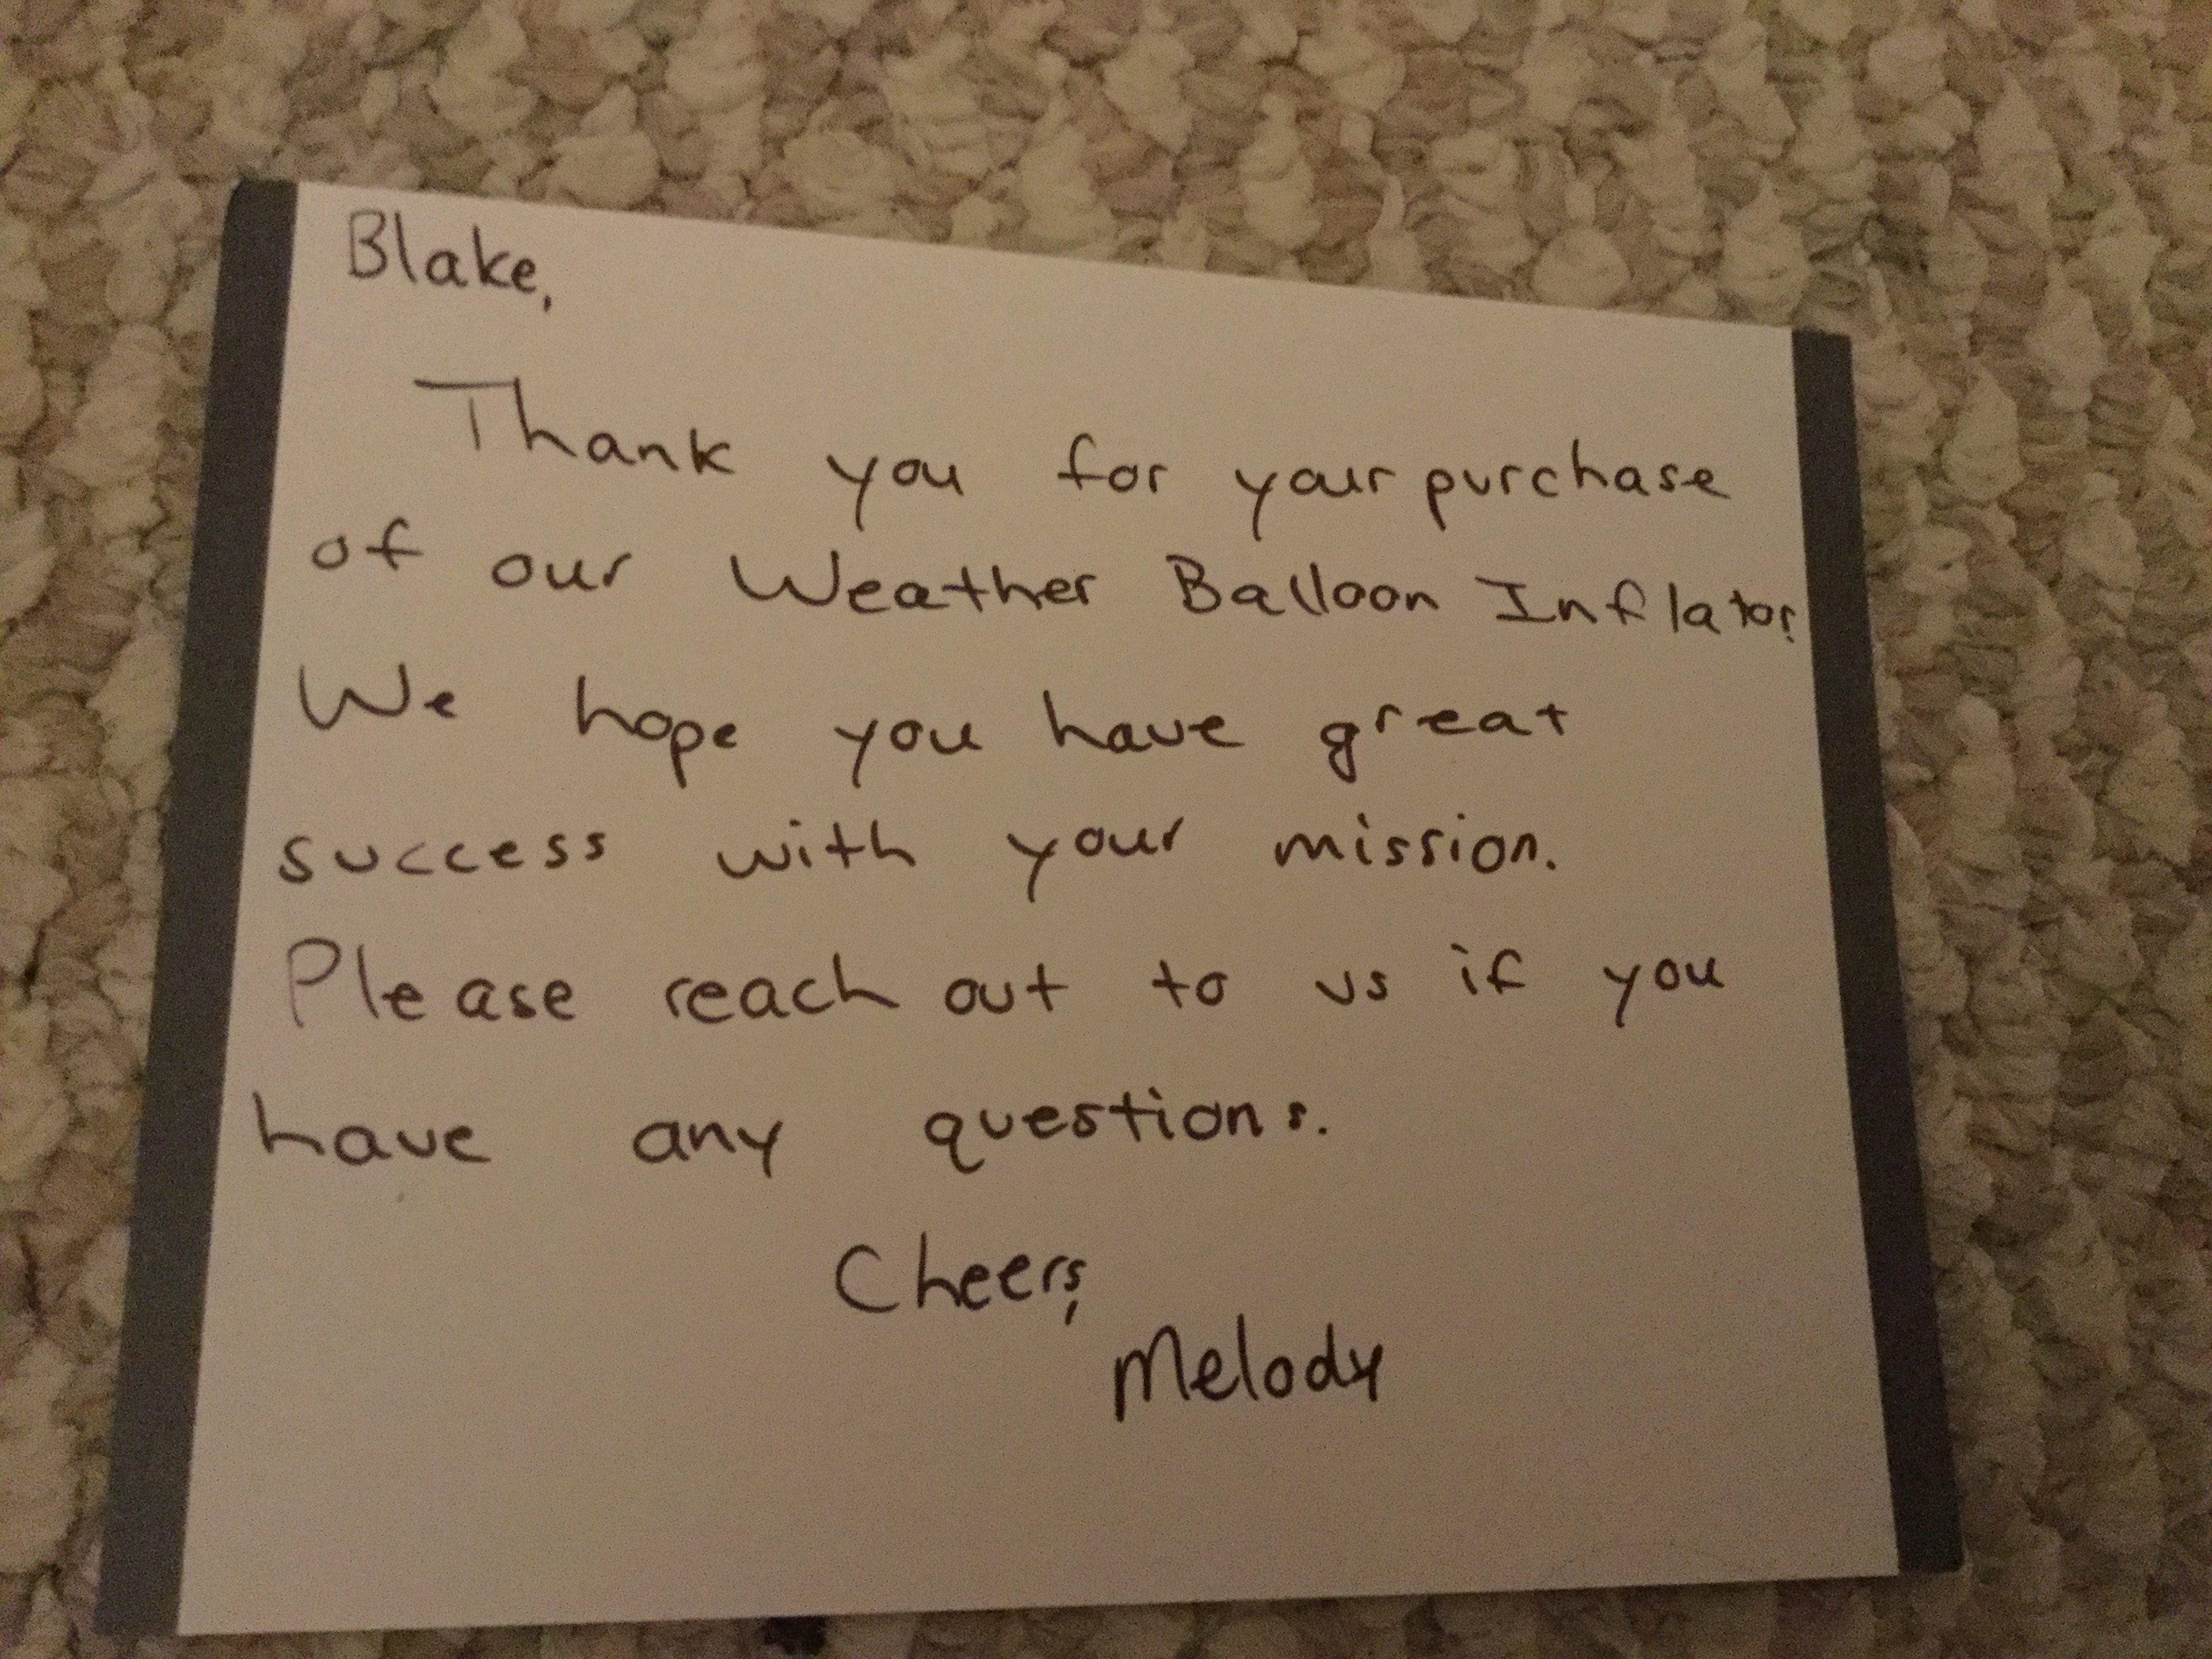 Blake,
Thank you for your purchase
of our Weather Balloon Inflator.
We hope you have great
success with your mission.
Please reach out to us if you
have any questions.
Cheers,
Melody